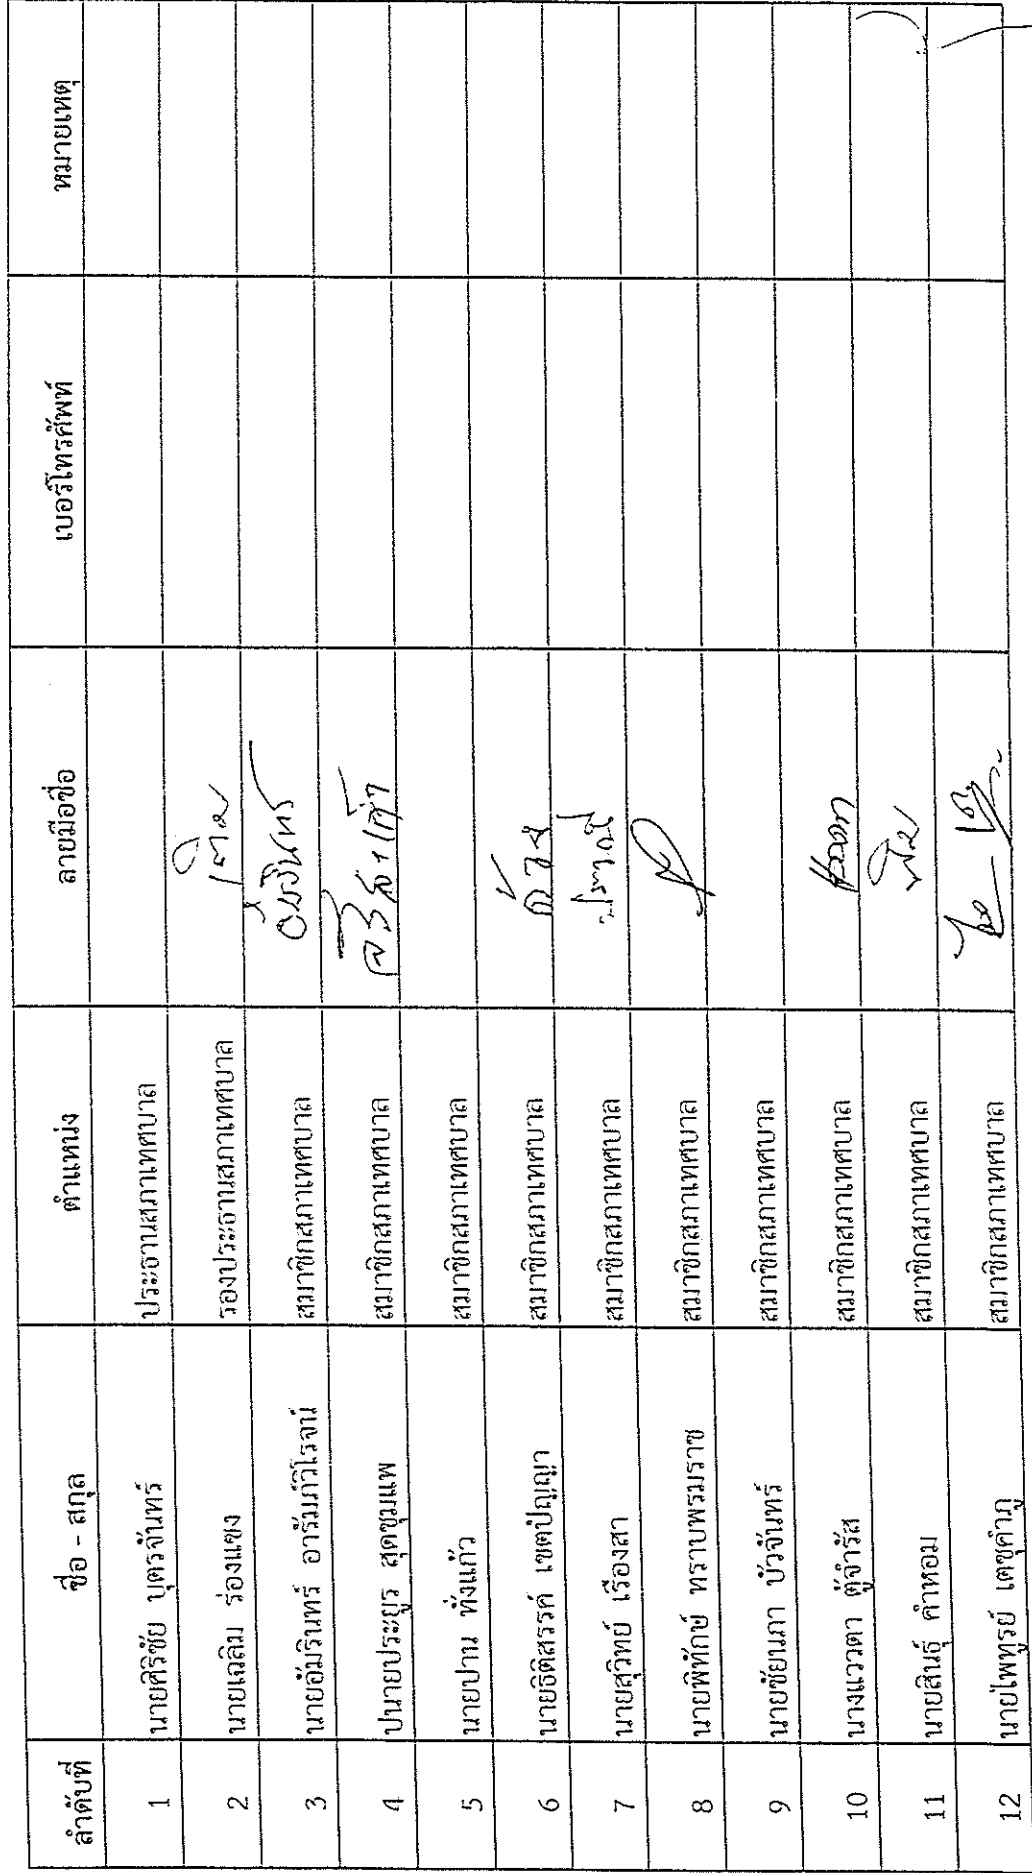 ลำดับที่ ชื่อ - สกุล ตำแหน่ง ลายมือชื่อ เบอร์โทรศัพท์ หมายเหตุ
1 นายศิริชัย บุตรจันทร์ ประธานสภาเทศบาล
2 นายเฉลิม ร่องแซง รองประธานสภาเทศบาล
3 นายอัมรินทร์ อารัมภ์วิโรจน์ สมาชิกสภาเทศบาล อัมรินทร์
4 ปนายประยูร สุดชุมแพ สมาชิกสภาเทศบาล
5 นายปาน ทั่งแก้ว สมาชิกสภาเทศบาล
6 นายธิติสรรค์ เขตปัญญา สมาชิกสภาเทศบาล
7 นายสุวิทย์ เรืองสา สมาชิกสภาเทศบาล
8 นายพิทักษ์ ทราบพรมราช สมาชิกสภาเทศบาล
9 นายชัยนภา บัวจันทร์ สมาชิกสภาเทศบาล
10 นางแววตา ตู้จำรัส สมาชิกสภาเทศบาล
11 นายสินธุ์ คำหอม สมาชิกสภาเทศบาล
12 นายไพฑูรย์ เตชคำภู สมาชิกสภาเทศบาล